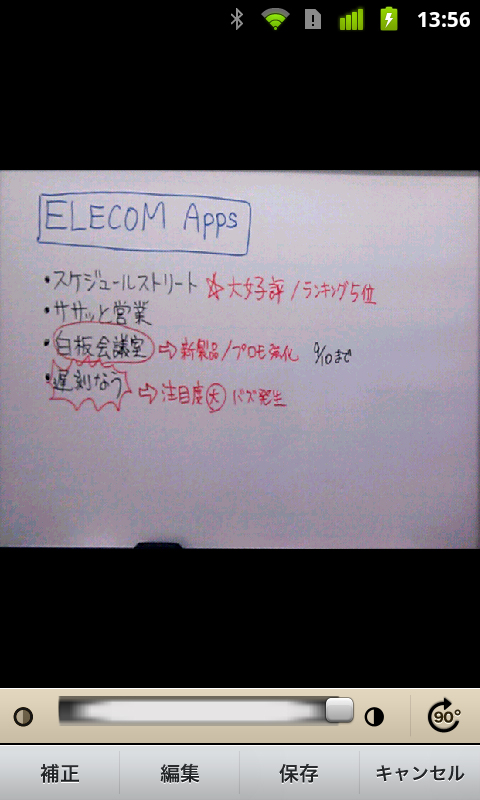 13:56
ELECOM Apps
・スケジュールストリート ☆大好評/ランキング5位
・ササッと営業
・白板会議室 ⇨新製品/プロモ強化 9/10まで
・遅刻なう ⇨注目度大 バズ発生
90°
補正 編集 保存 キャンセル